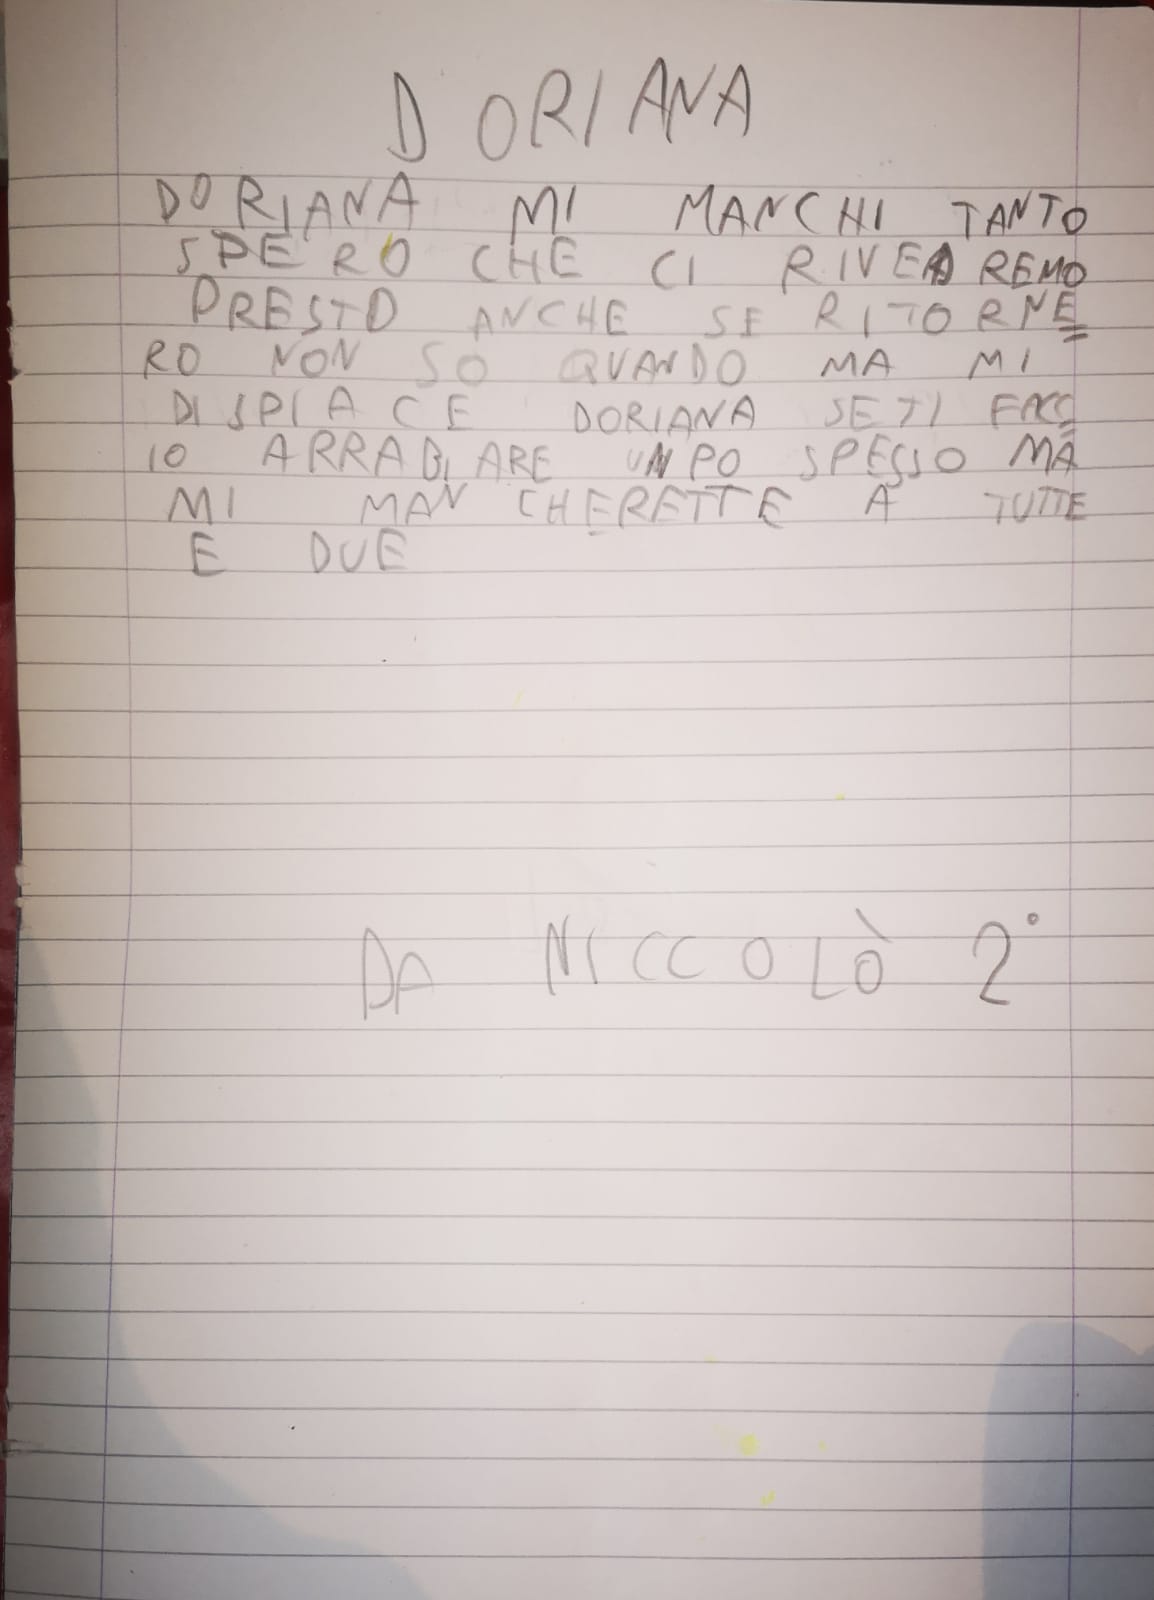 DORIANA
DORIANA MI MANCHI TANTO
SPERO CHE CI RIVEDREMO
PRESTO ANCHE SE RITORNE
RO NON SO QUANDO MA MI
DISPIACE DORIANA SE TI FACC
IO ARRABIARE UN PO SPESSO MA
MI MANCHERETTE A TUTTE
E DUE
DA NICCOLÒ 2°